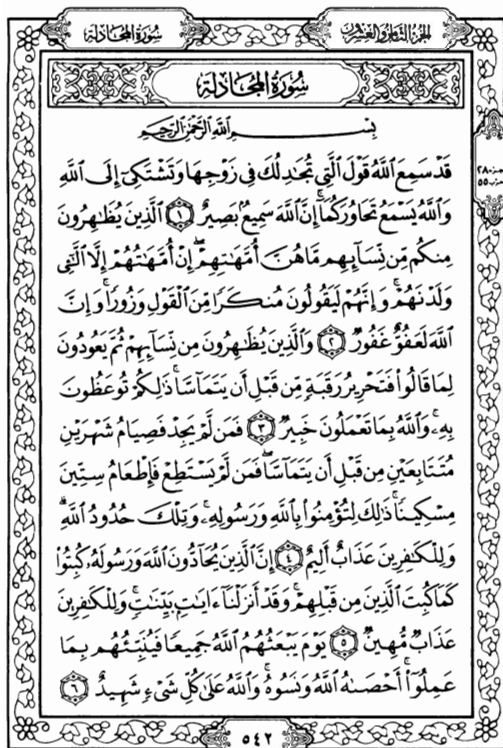 سُورَةُ المُجَادلة
الجزء الثامن والعشرون
سُورَةُ المُجَادلة
بِسْمِ ٱللَّهِ ٱلرَّحْمَٰنِ ٱلرَّحِيمِ
قَدْ سَمِعَ ٱللَّهُ قَوْلَ ٱلَّتِى تُجَٰدِلُكَ فِى زَوْجِهَا وَتَشْتَكِىٓ إِلَى ٱللَّهِ
وَٱللَّهُ يَسْمَعُ تَحَاوُرَكُمَآ إِنَّ ٱللَّهَ سَمِيعٌۢ بَصِيرٌ ١ ٱلَّذِينَ يُظَٰهِرُونَ
مِنكُم مِّن نِّسَآئِهِم مَّا هُنَّ أُمَّهَٰتِهِمْ ۖ إِنْ أُمَّهَٰتُهُمْ إِلَّا ٱلَّٰٓـِٔى
وَلَدْنَهُمْ ۚ وَإِنَّهُمْ لَيَقُولُونَ مُنكَرًا مِّنَ ٱلْقَوْلِ وَزُورًا ۚ وَإِنَّ
ٱللَّهَ لَعَفُوٌّ غَفُورٌ ٢ وَٱلَّذِينَ يُظَٰهِرُونَ مِن نِّسَآئِهِمْ ثُمَّ يَعُودُونَ
لِمَا قَالُوا۟ فَتَحْرِيرُ رَقَبَةٍ مِّن قَبْلِ أَن يَتَمَآسَّا ۚ ذَٰلِكُمْ تُوعَظُونَ
بِهِۦ ۚ وَٱللَّهُ بِمَا تَعْمَلُونَ خَبِيرٌ ٣ فَمَن لَّمْ يَجِدْ فَصِيَامُ شَهْرَيْنِ
مُتَتَابِعَيْنِ مِن قَبْلِ أَن يَتَمَآسَّا ۖ فَمَن لَّمْ يَسْتَطِعْ فَإِطْعَامُ سِتِّينَ
مِسْكِينًا ۚ ذَٰلِكَ لِتُؤْمِنُوا۟ بِٱللَّهِ وَرَسُولِهِۦ ۚ وَتِلْكَ حُدُودُ ٱللَّهِ ۗ
وَلِلْكَٰفِرِينَ عَذَابٌ أَلِيمٌ ٤ إِنَّ ٱلَّذِينَ يُحَآدُّونَ ٱللَّهَ وَرَسُولَهُۥ كُبِتُوا۟
كَمَا كُبِتَ ٱلَّذِينَ مِن قَبْلِهِمْ ۚ وَقَدْ أَنزَلْنَآ ءَايَٰتٍۭ بَيِّنَٰتٍ ۚ وَلِلْكَٰفِرِينَ
عَذَابٌ مُّهِينٌ ٥ يَوْمَ يَبْعَثُهُمُ ٱللَّهُ جَمِيعًا فَيُنَبِّئُهُم بِمَا
عَمِلُوٓا۟ ۚ أَحْصَىٰهُ ٱللَّهُ وَنَسُوهُ ۚ وَٱللَّهُ عَلَىٰ كُلِّ شَىْءٍ شَهِيدٌ ٦
٥٤٢